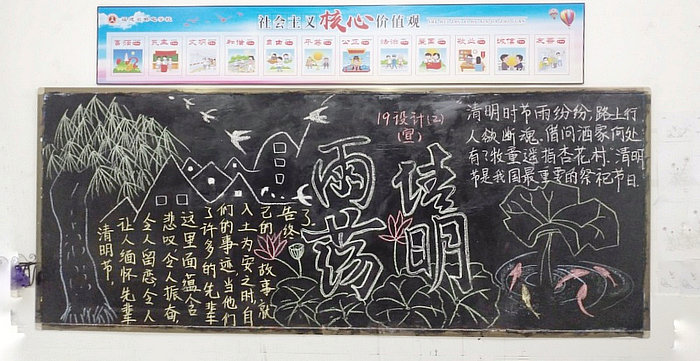 社会主义核心价值观
富强 民主 文明 和谐 自由 平等 公正 法治 爱国 敬业 诚信 友善
19设计(2)
(宣)
雨荡
清明
清明时节雨纷纷,路上行
人欲断魂。借问酒家何处
有?牧童遥指杏花村。清明
节是我国最重要的祭祀节日.
清明节,
让人缅怀先辈
令人留恋,令人
悲叹,令人振奋,
这里面蕴含
了许多的先辈
们的事迹,当他们
入土为安之时,自
己的故事就
告终
了